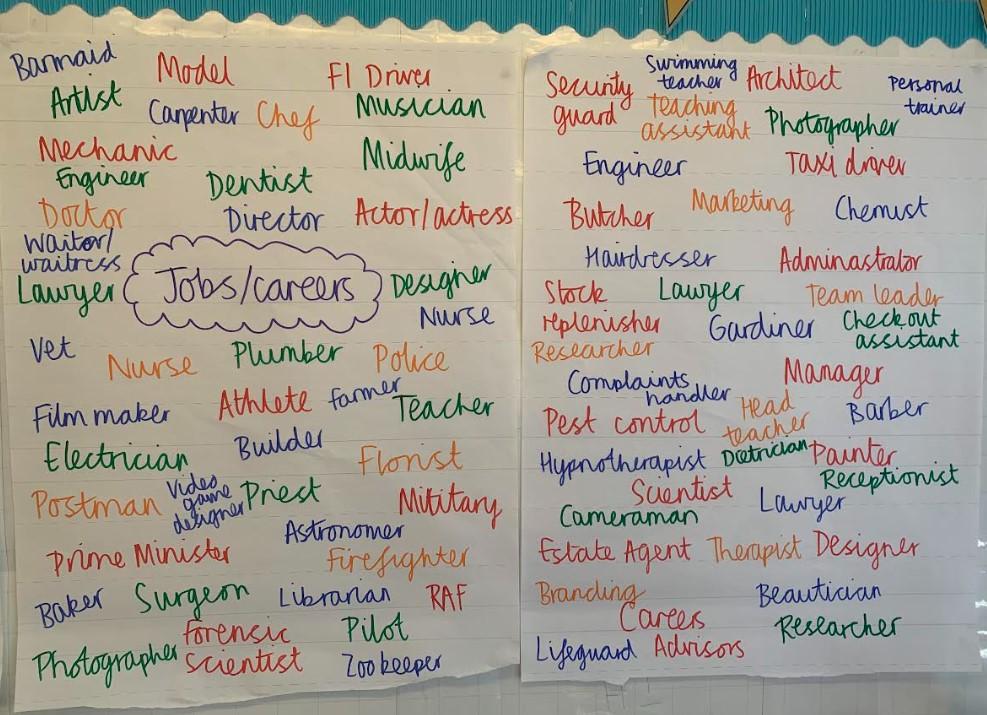 Barmaid Model F1 Driver
Artist Carpenter Chef Musician
Mechanic Midwife
Engineer Dentist
Doctor Director Actor/actress
Waiter/
waitress
Jobs/careers
Lawyer Designer
Nurse
Vet Nurse Plumber Police
Film maker Athlete farmer Teacher
Electrician Builder Florist
Postman Video
game
designer Priest Mititary
Astronomer
Prime Minister Firefighter
Baker Surgeon Librarian RAF
Photographer forensic
scientist Pilot
Zookeeper
Security
guard Swimming
teacher Architect Personal
trainer
Teaching
assistant Photographer
Engineer Taxi driver
Butcher Marketing Chemist
Hairdresser Adminastrator
Stock
replenisher Lawyer Team leader
Gardiner Checkout
assistant
Researcher
Complaints
handler Manager
Pest control Head
teacher Barber
Hypnotherapist Dietrician Painter
Receptionist
Scientist Lawyer
Cameraman
Estate Agent Therapist Designer
Branding Beautician
Careers
Advisors Researcher
Lifeguard